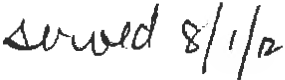 served 8/1/12